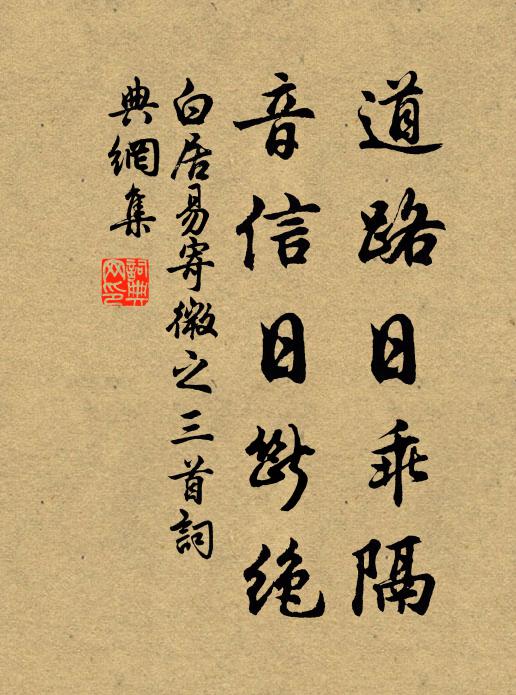 道路日乖隔
音信日斷絕
白居易寄微之三首詞
典網集
詞典
网印